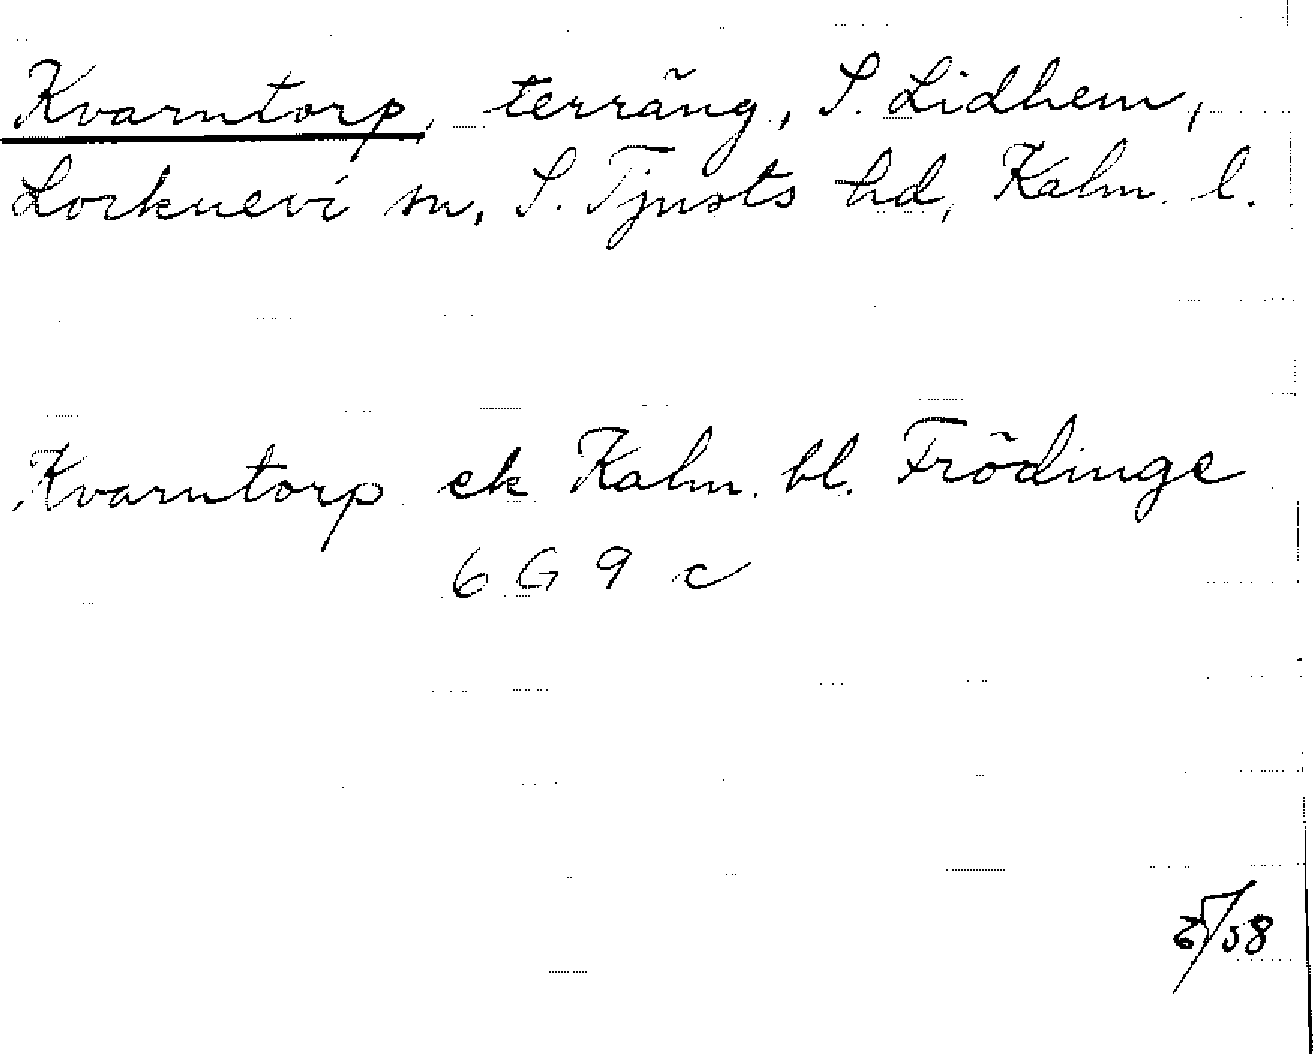 Kvarntorp, terräng, S. Lidhem,
Locknevi sn, S. Tjusts hd, Kalm. l.
Kvarntorp ek Kalm. bl. Frödinge
6 G 9 c